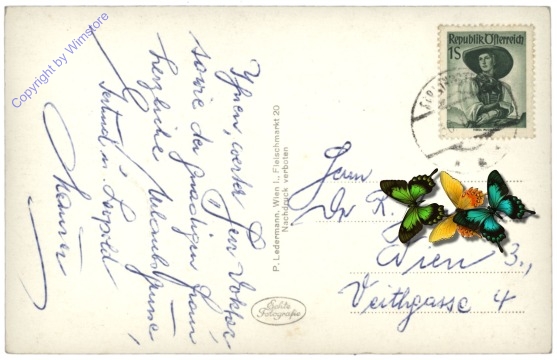 Copyright by Wimstore
Ihnen, werter Herr Doktor,
sowie der gnädigen Frau
herzliche Urlaubsgrüsse,
Gertrud u. Leopold
P. Ledermann, Wien I., Fleischmarkt 20
Nachdruck verboten
Echte
Fotografie
Republik Österreich
1S
Herrn
Dr. R.
Wien 3.,
Veithgasse 4